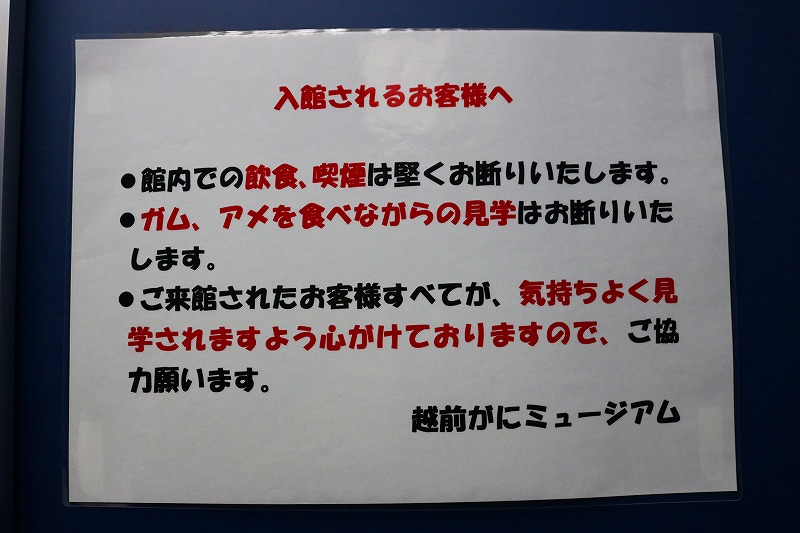 入館されるお客様へ
●館内での飲食、喫煙は堅くお断りいたします。
●ガム、アメを食べながらの見学はお断りいた
します。
●ご来館されたお客様すべてが、気持ちよく見
学されますよう心がけておりますので、ご協
力願います。
越前がにミュージアム